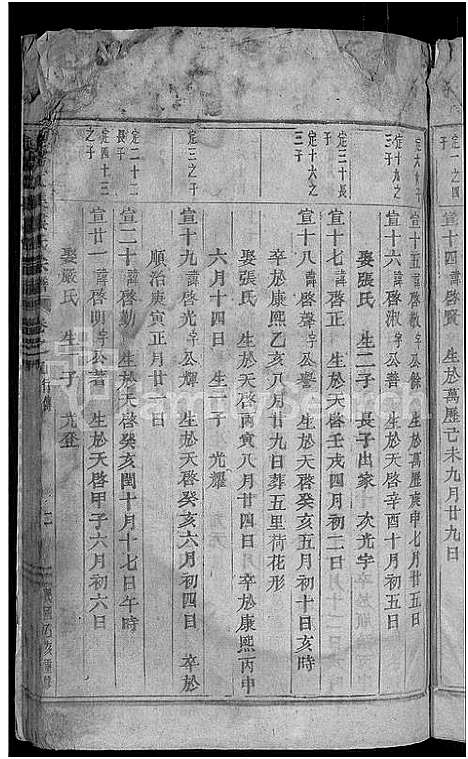 定一之四子
宣十四諱啓賢 生於萬曆己未九月廿九日
定六位子
宣十五諱啓 字公餘 生於萬曆庚申七月廿五日
定十九之三子
宣十六諱啓淑字公善 生於天啓辛酉十月初五日
娶張氏 生二子 長子出家 次光字
定三十長子
宣十七諱啓正 生於天啓壬戌四月初二日
定十六之三子
宣十八諱啓聲字公譽 生於天啓癸亥五月初十日亥時
卒於康熙乙亥八月廿九日葬五里荷花形
娶張氏 生於天啓丙寅八月廿四日 卒於康熙丙申
六月十四日 生一子 光耀
定三之子
宣十九諱啓光字公輝 生於天啓癸亥六月初四日 卒於
順治庚寅正月廿一日
定二十二長子
宣二十諱啓勤 生於天啓癸亥閏十月十七日午時
定四十三之子
宣廿一諱啓明字公著 生於天啓甲子六月初六日
娶嚴氏 生一子 光
氏宗譜 卷 行傳 二 民國乙亥重修